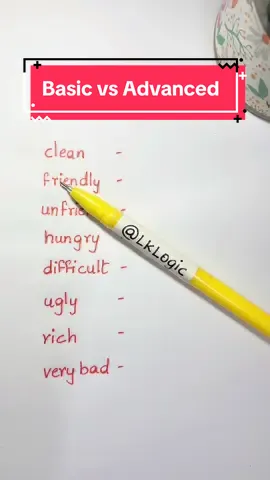 Basic vs Advanced
clean -
friendly -
-
hungry -
difficult -
ugly -
rich -
very bad -
@LKLogic